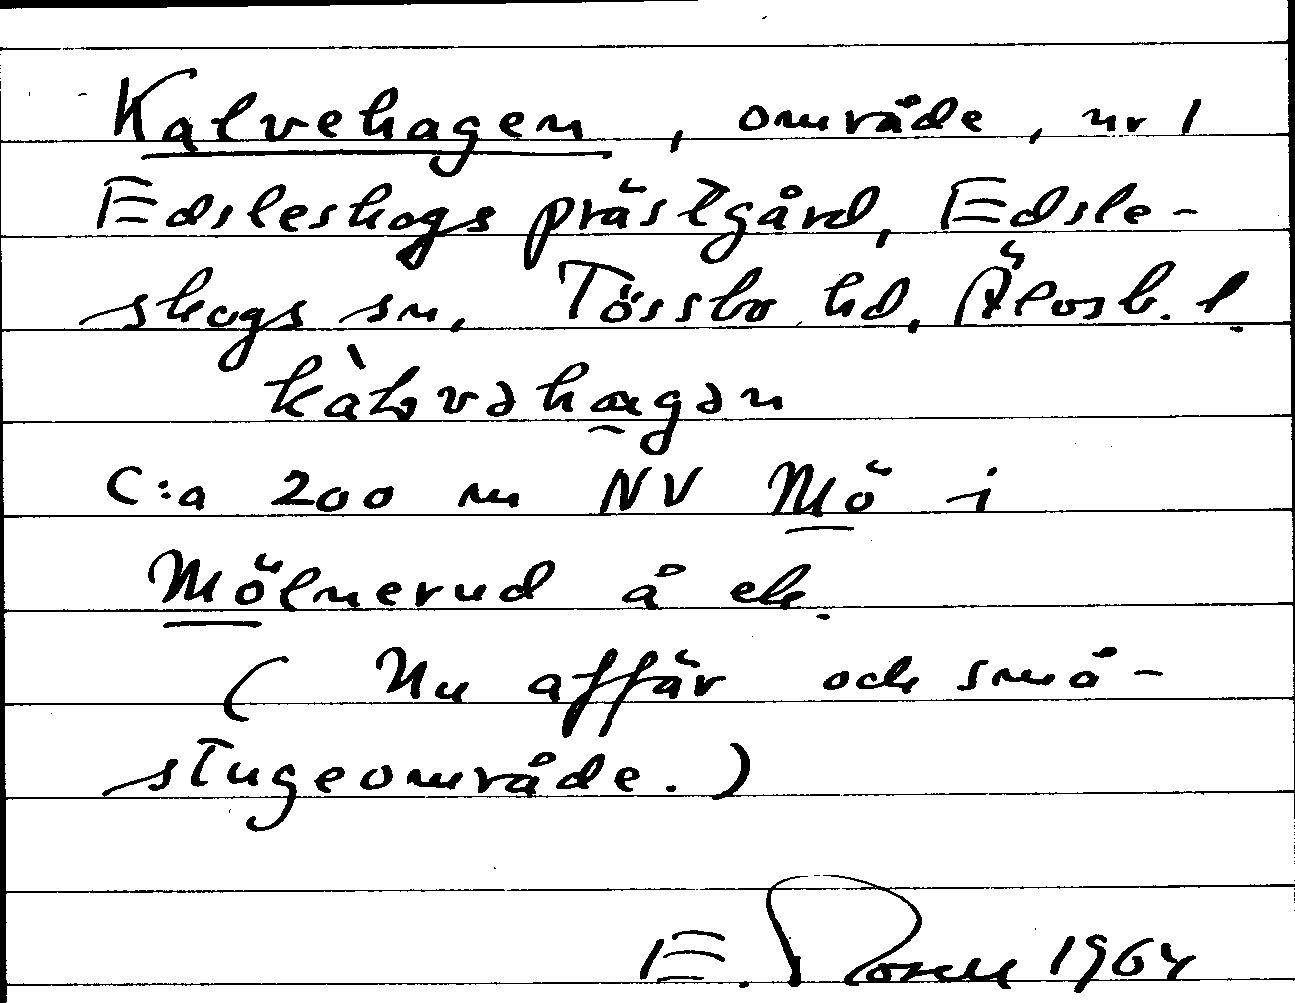 Kalvehagen, område, nr 1
Edsleskogs prästgård, Edsle-
skogs sn, Tössbo hd, Älvsb. l.
kàlvəhagən
C:a 200 m NV Mö i
Mölnerud å ek.
( Nu affär och små-
stugeområde. )
E. Rosell 1964